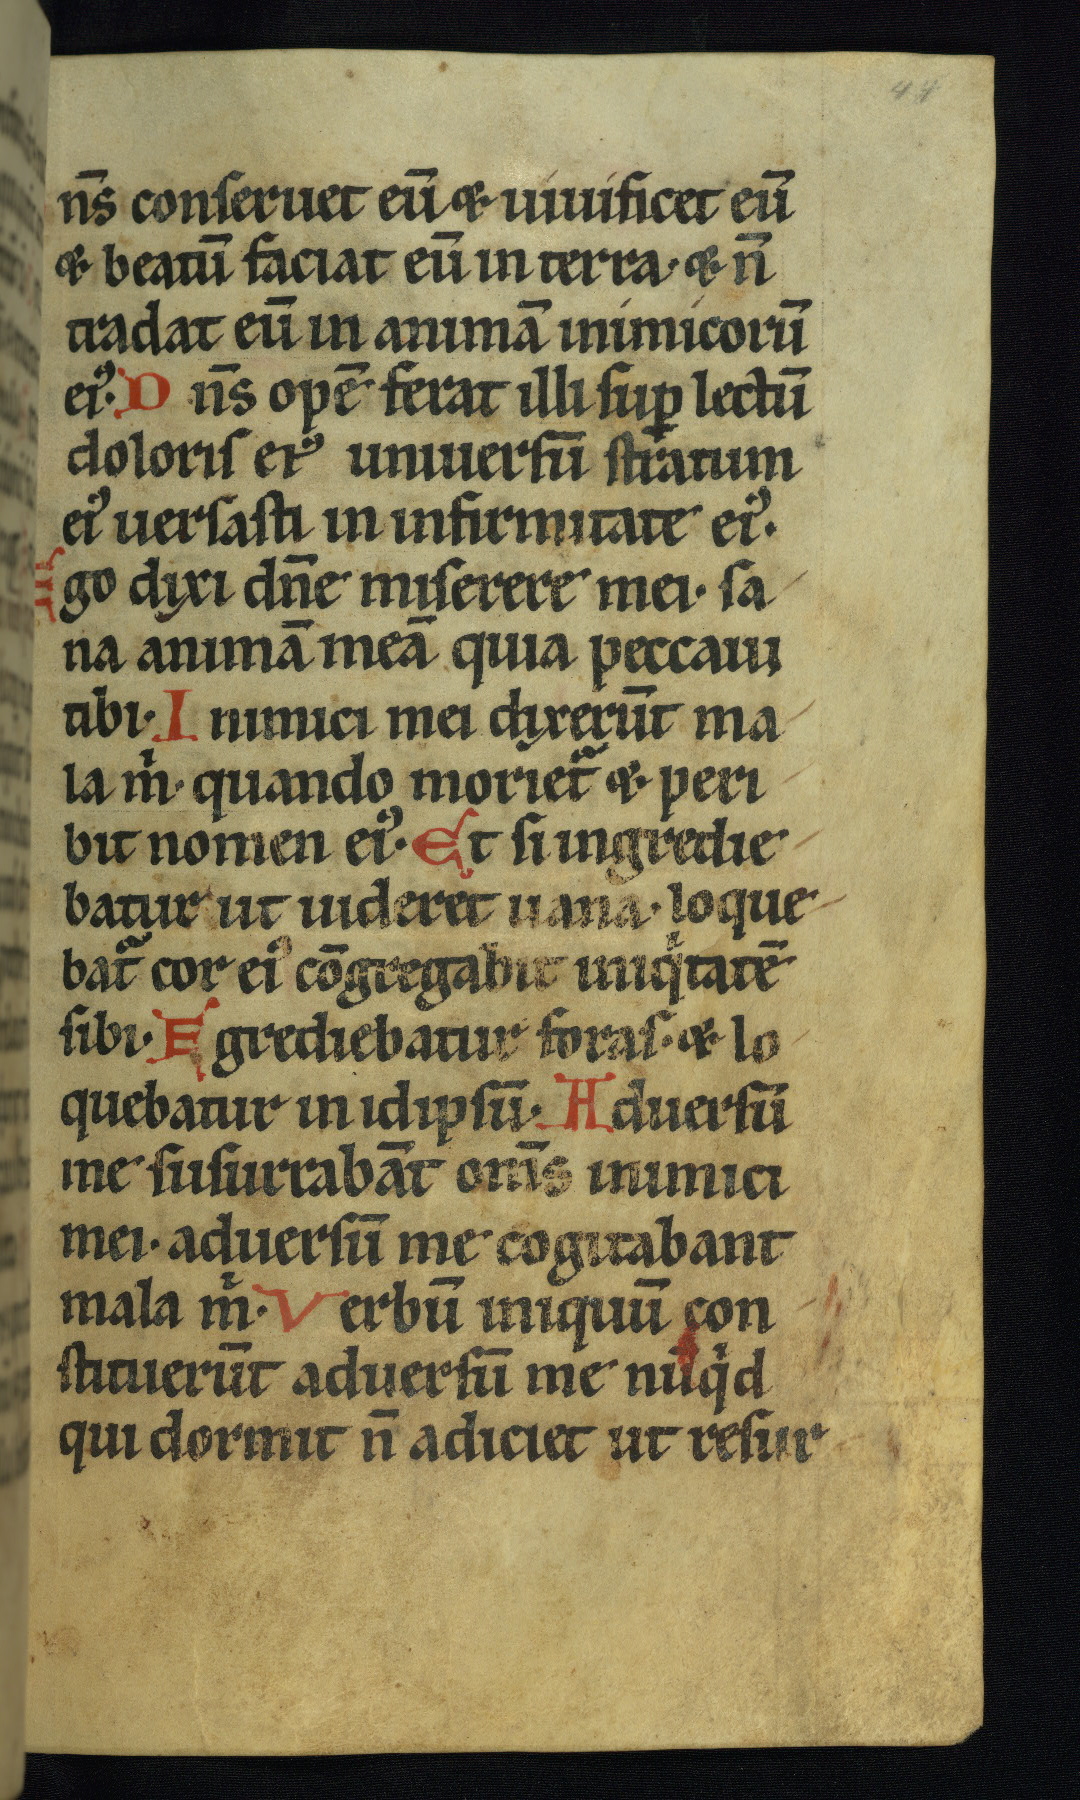 44
nn̄s conseruet eū & uiuificet eū
& beatū faciat eū in terra · & n̄
tradat eū in animā inimicorū
ei⁹ · D n̄s opē ferat illi suꝑ lectū
doloris ei⁹ uniuersū stratum
ei⁹ uersasti in infirmitate ei⁹ ·
Ego dixi dn̄e miserere mei · sa
na animā meā quia peccaui
tibi · Inimici mei dixerūt ma
la m̍ · quando moriet᷑ & peri
bit nomen ei⁹ · Et si ingredie
batur ut uideret uana · loque
bat᷑ cor ei⁹ cōgregabit iniqͥtatē
sibi · Egrediebatur foras · & lo
quebatur in idipsū · Aduersū
me susurrabāt om̄s inimici
mei · aduersū me cogitabant
mala m̍ · Verbū iniquū con
stituerūt aduersū me nūqͥd
qui dormit n̄ adiciet ut resur